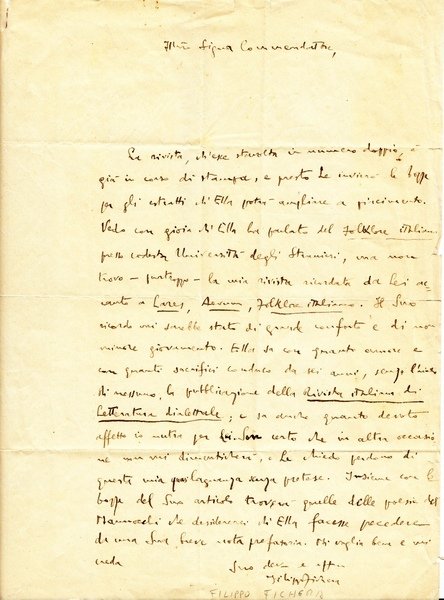 Ill.mo Signor Commendatore,
La rivista, ch'esce stavolta in numero doppio, è
già in corso di stampa, e presto Le invierò le bozze
per gli estratti ch'Ella potrà ampliare a piacimento.
Vedo con gioia ch'Ella ha parlato del Folklore italiano
presso codesta Università degli Stranieri, ma non
trovo - purtroppo - la mia rivista ricordata da Lei ac
canto a Lares, Aevum, Folklore italiano. Il Suo
ricordo mi sarebbe stato di grande conforto e di non
minore giovamento. Ella sa con quanto amore e
con quanti sacrifici conduco da sei anni, senza l'aiuto
di nessuno, la pubblicazione della Rivista italiana di
Letteratura dialettale; e sa anche quanto devoto
affetto io nutra per Lei. Son certo che in altra occasio
ne non mi dimenticherà, e Le chiedo perdono di
questa mia lagnanza senza pretese. Insieme con le
bozze del Suo articolo troverà quelle delle poesie del
che desidererei ch'Ella facesse precedere
da una Sua breve nota prefatoria. Mi voglia bene e mi
creda
Suo dev. e aff.
Filippo Fichera
FILIPPO FICHERA